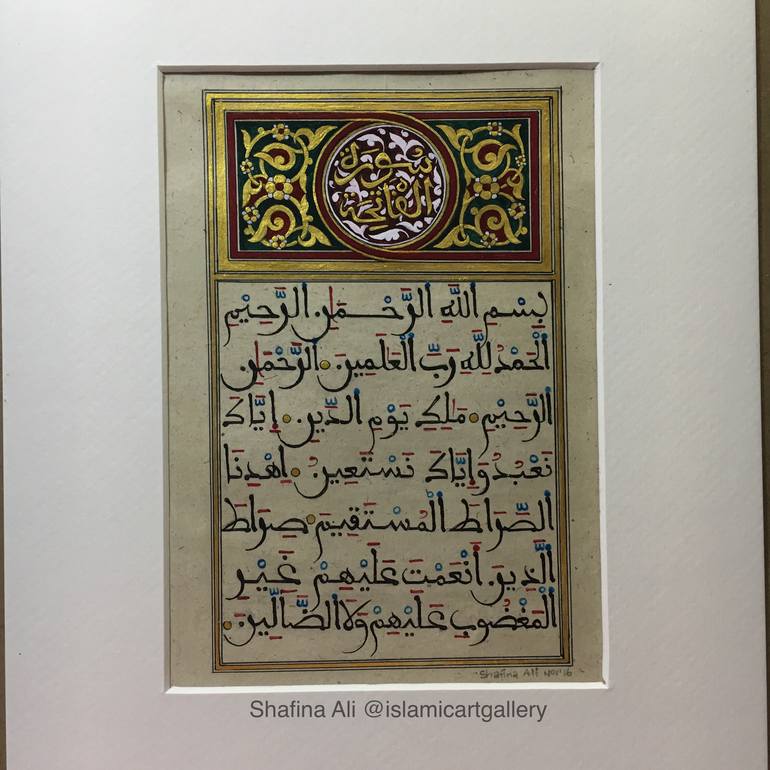 سورة
الفاتحة
بِسْمِ اللَّهِ الرَّحْمَٰنِ الرَّحِيْمِ
الْحَمْدُ لِلَّهِ رَبِّ الْعَٰلَمِينَ الرَّحْمَٰنِ
الرَّحِيْمِ مَٰلِكِ يَوْمِ الدِّينِ إِيَّاكَ
نَعْبُدُ وَإِيَّاكَ نَسْتَعِينُ اهْدِنَا
الصِّرَاطَ الْمُسْتَقِيمَ صِرَاطَ
الَّذِينَ أَنْعَمْتَ عَلَيْهِمْ غَيْرِ
الْمَغْضُوبِ عَلَيْهِمْ وَلَا الضَّالِّينَ
Shafina Ali Nov 16
Shafina Ali @islamicartgallery